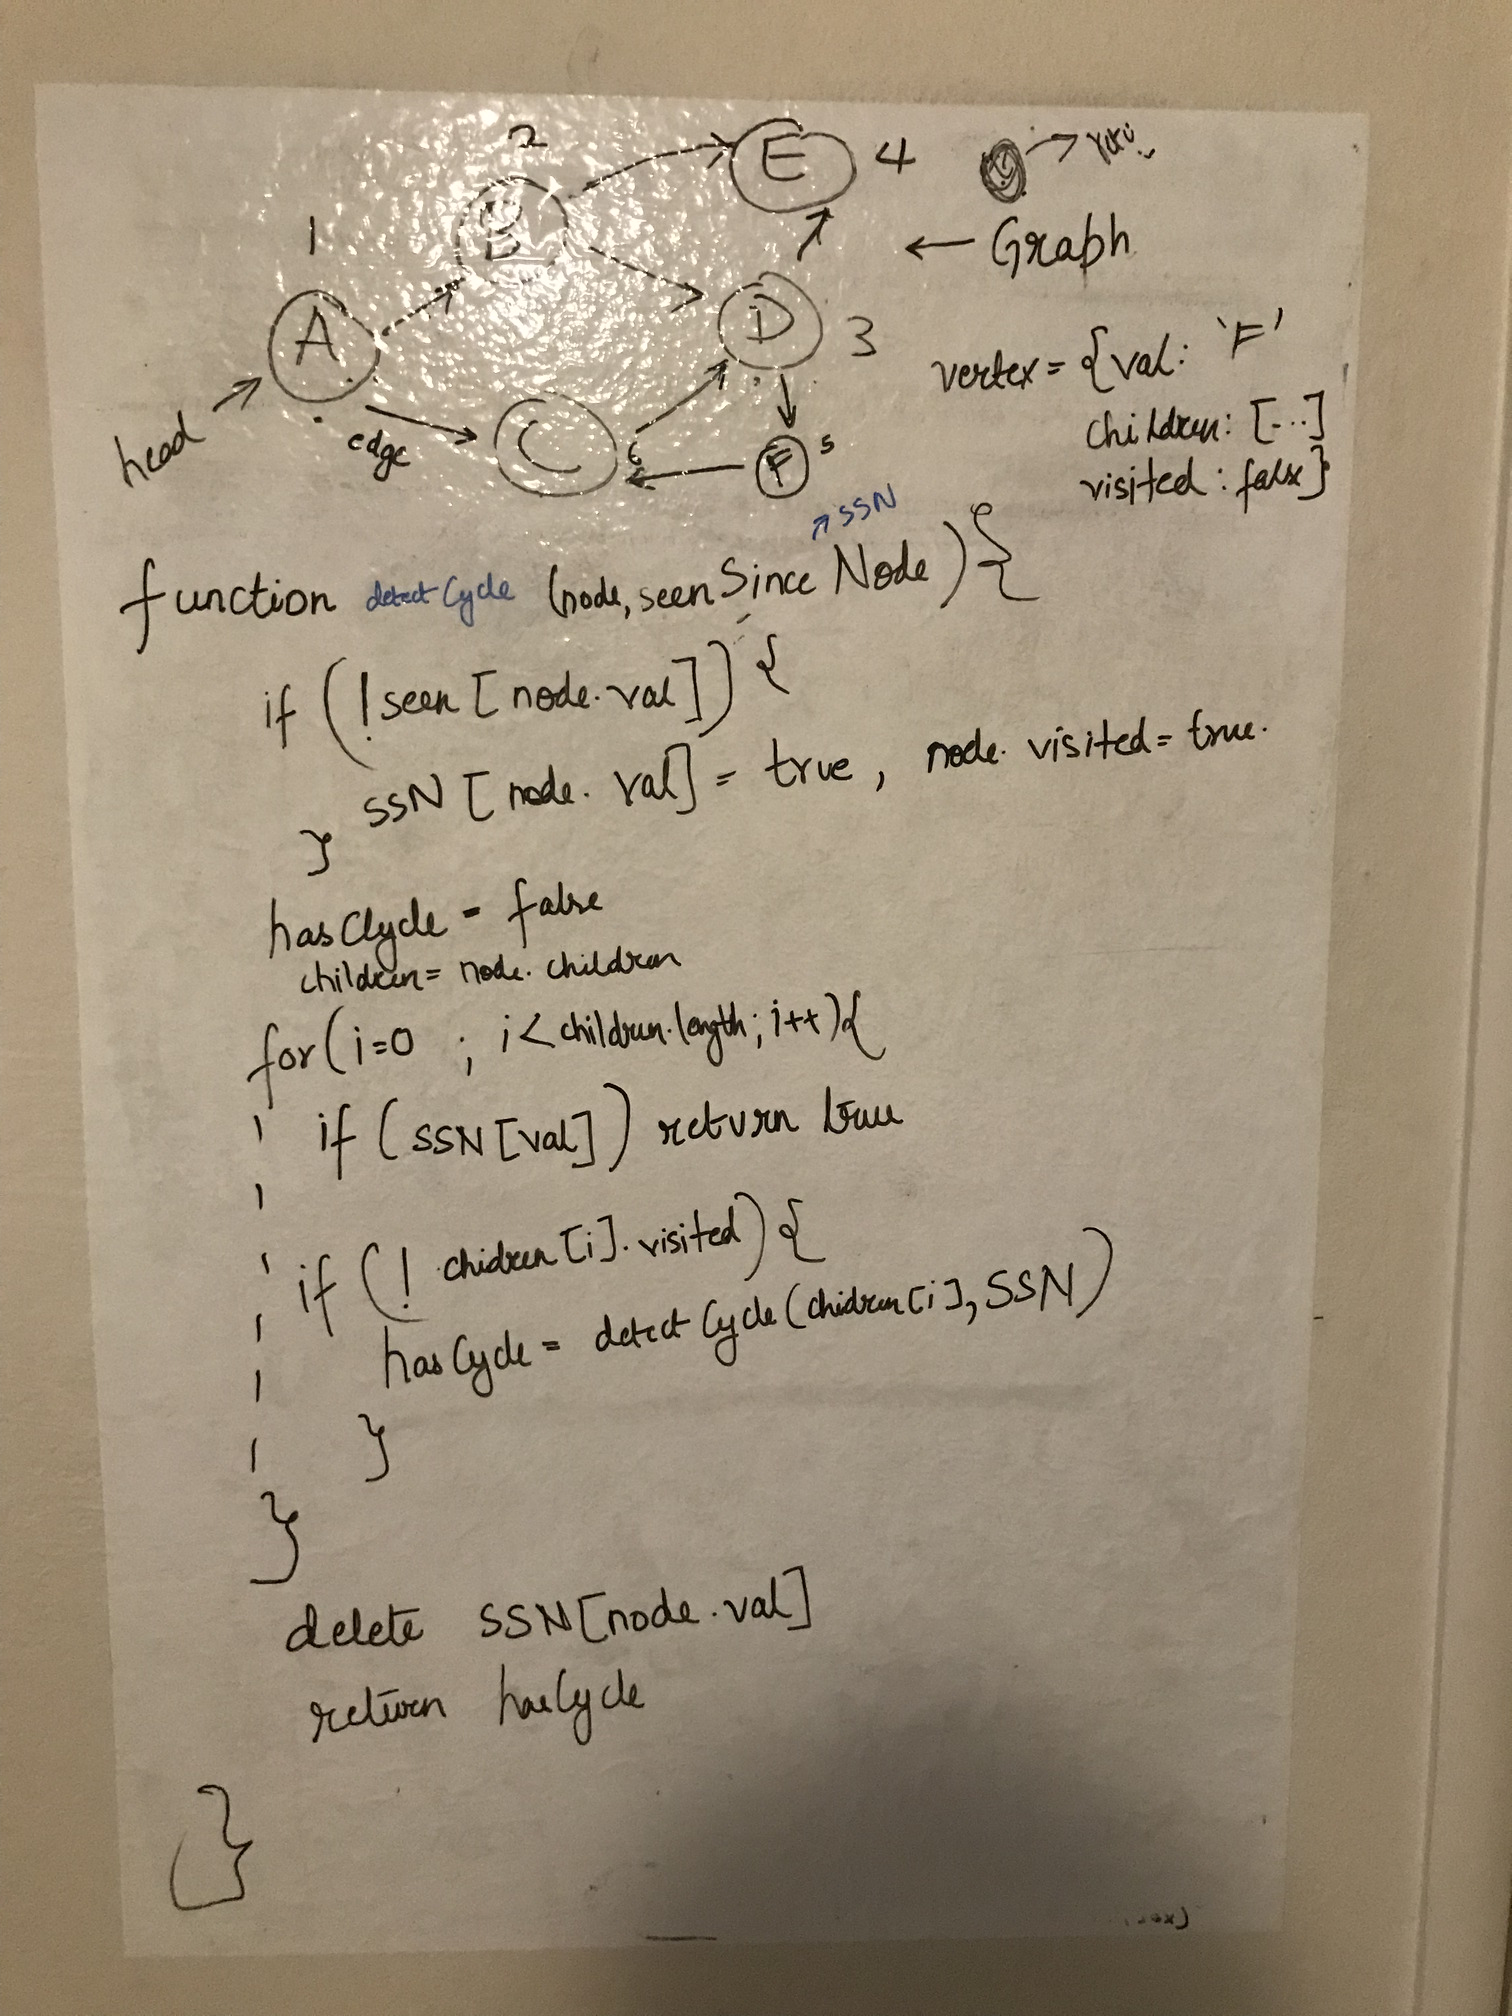 2
E 4
B
1
← Graph
A
D 3
vertex = {val: 'F'
children: [...]
visited: false}
head
edge
C
6
F 5
↗ SSN
function detectCycle (node, seenSinceNode) {
if (!seen [node.val]) {
SSN [node.val] = true, node.visited = true.
}
hasClycle = false
children = node.children
for (i=0 ; i < children.length; i++) {
if (SSN [val]) return true
if (! chidren [i].visited) {
hasCycle = detectCycle (chidren [i], SSN)
}
}
delete SSN [node.val]
return hasCycle
}